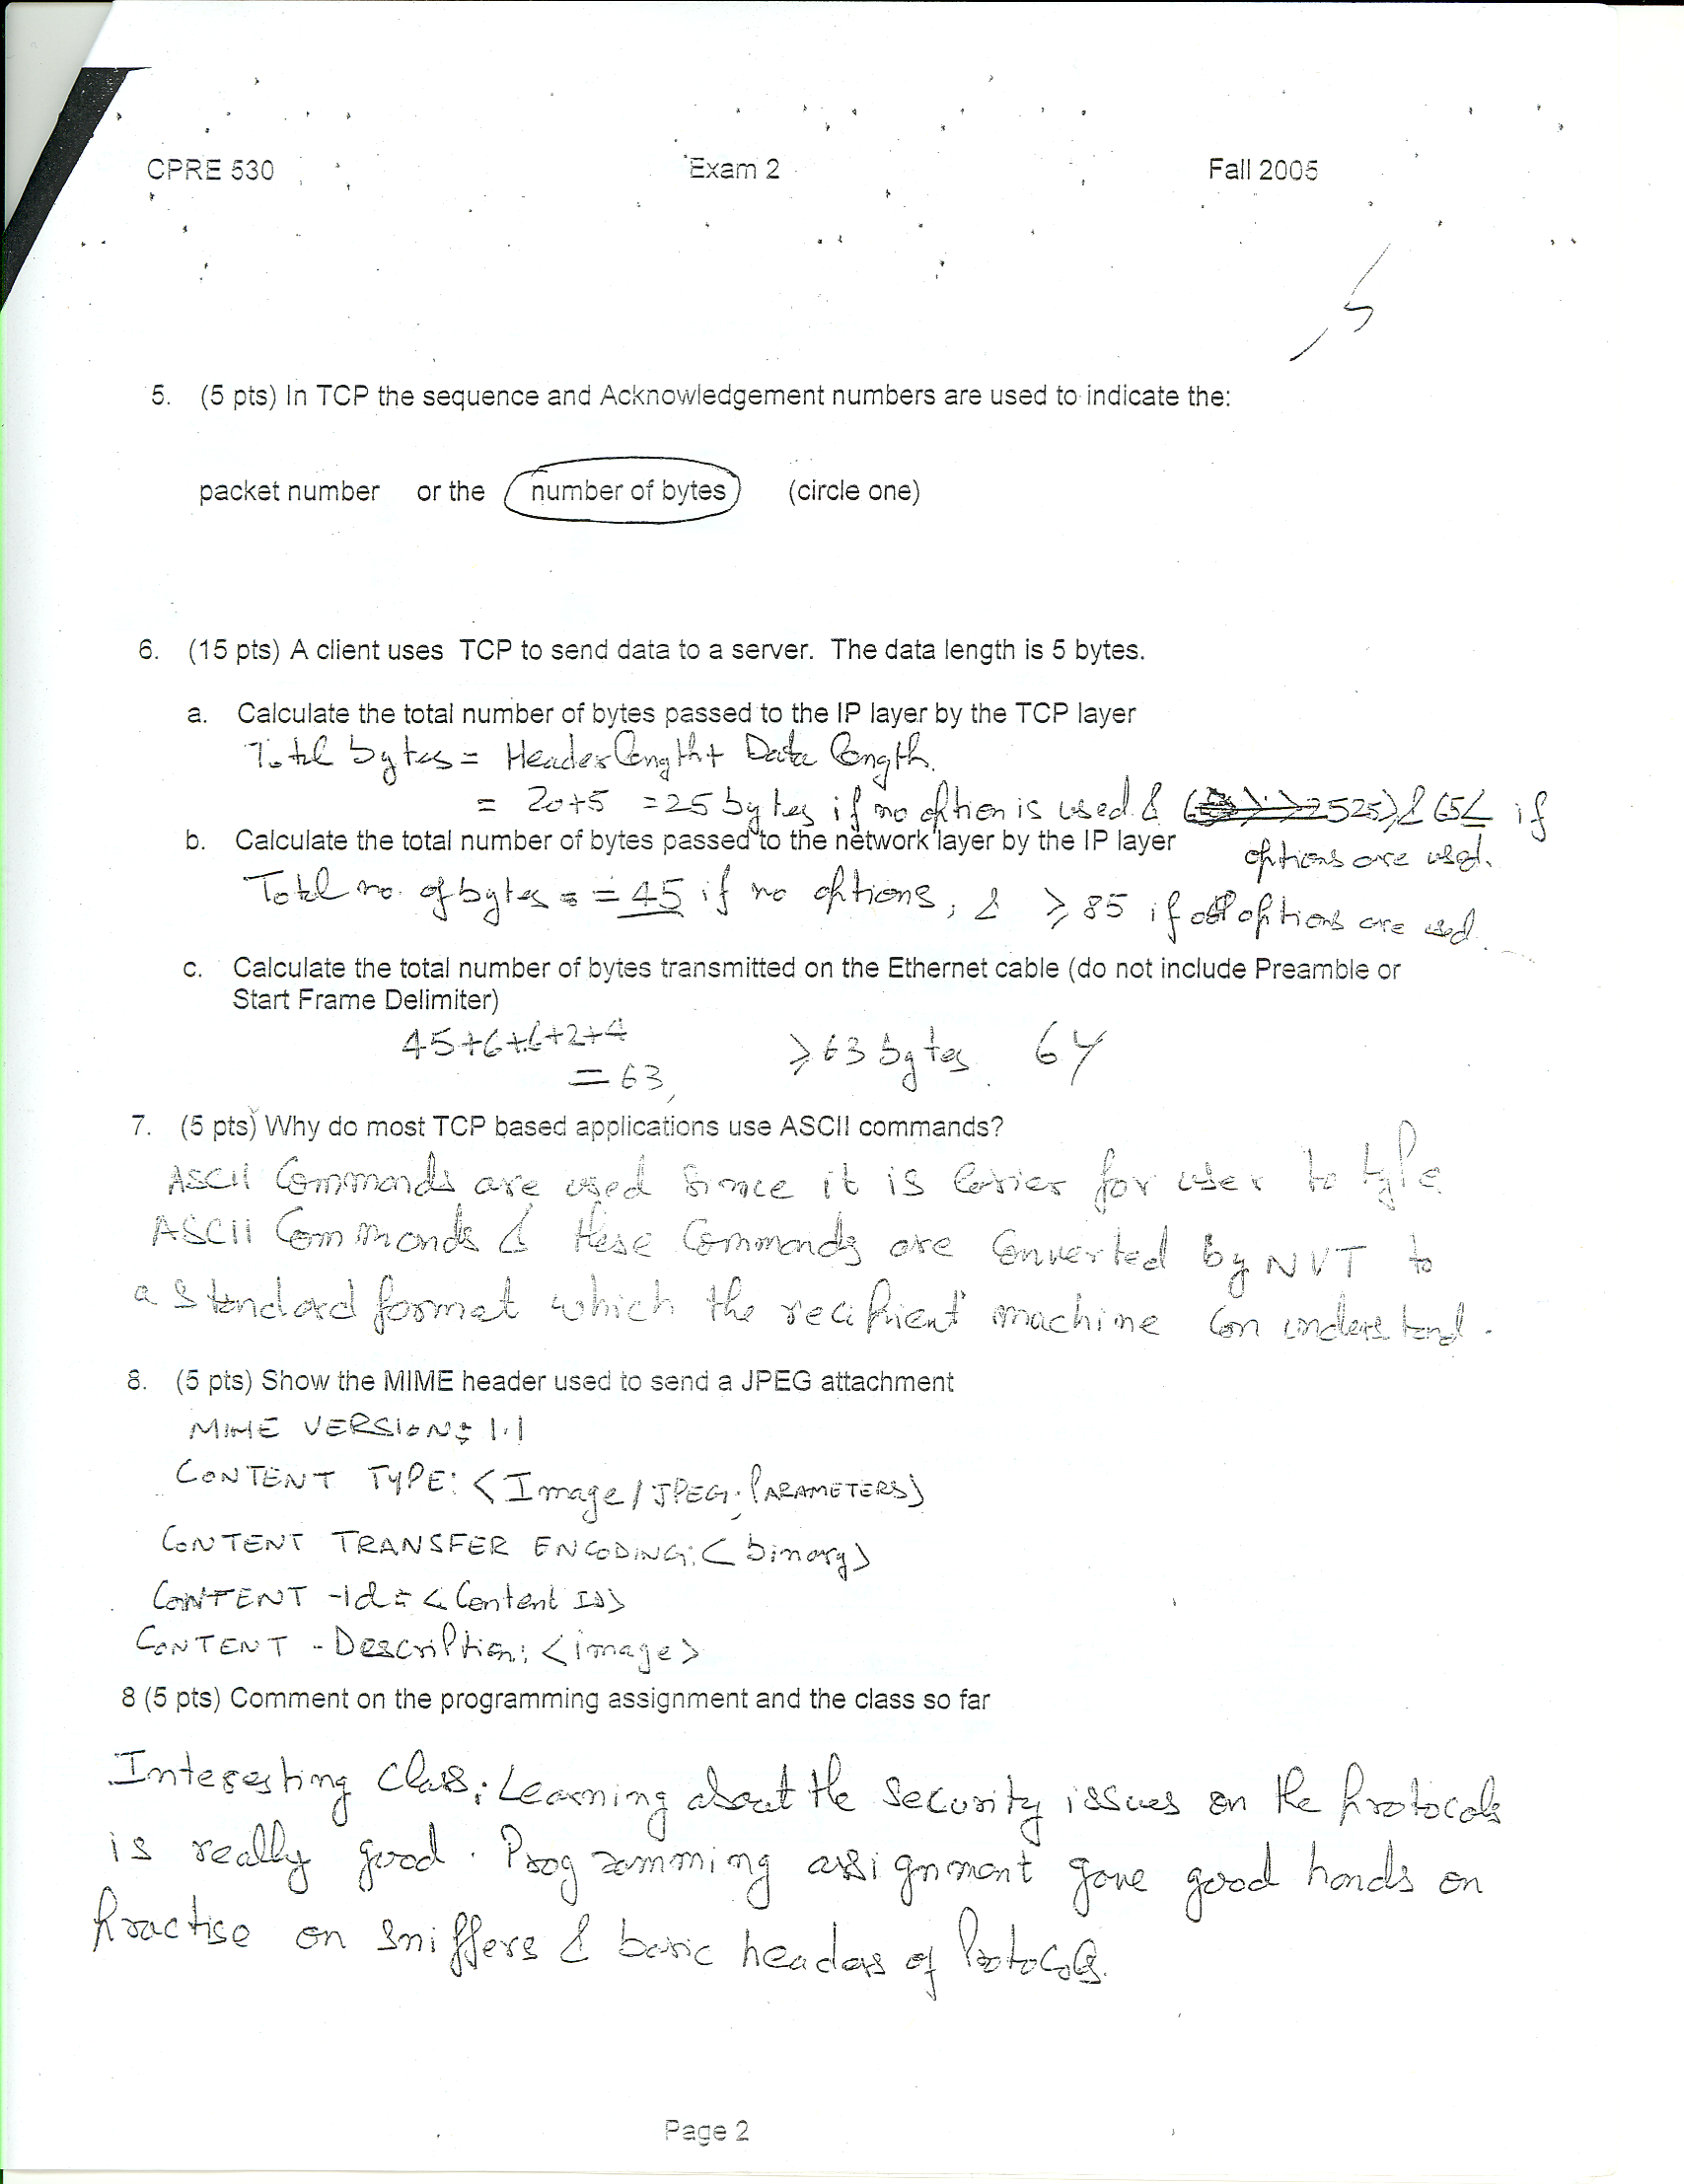 CPRE 530 Exam 2 Fall 2005
5
5. (5 pts) In TCP the sequence and Acknowledgement numbers are used to indicate the:
packet number or the number of bytes (circle one)
6. (15 pts) A client uses TCP to send data to a server. The data length is 5 bytes.
a. Calculate the total number of bytes passed to the IP layer by the TCP layer
Total bytes = Header length + Data length.
= 20+5 = 25 bytes if no option is used & 25) & 65 if
options are used.
b. Calculate the total number of bytes passed to the network layer by the IP layer
Total no. of bytes = = 45 if no options, & ≥ 85 if options are used.
c. Calculate the total number of bytes transmitted on the Ethernet cable (do not include Preamble or
Start Frame Delimiter)
45+6+6+2+4 ≥ 63 bytes. 64
= 63,
7. (5 pts) Why do most TCP based applications use ASCII commands?
ASCII Commands are used since it is easier for user to type
ASCII Commands & these Commands are Converted by NVT to
a standard format which the recipient machine can understand.
8. (5 pts) Show the MIME header used to send a JPEG attachment
MIME VERSION: 1.1
CONTENT TYPE: <Image/JPEG; PARAMETERS>
CONTENT TRANSFER ENCODING: <binary>
CONTENT -Id: <Content ID>
CONTENT - Description: <image>
8 (5 pts) Comment on the programming assignment and the class so far
Interesting Class; Learning about the security issues on the protocols
is really good. Programming assignment gave good hands on
practise on sniffers & basic headers of Protocols.
Page 2